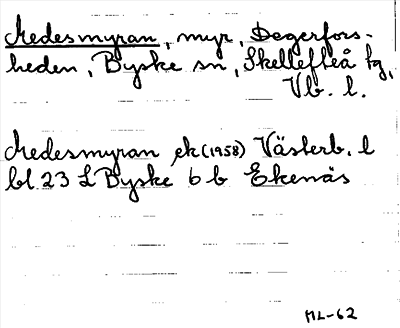 Medesmyran, myr, Degerfors-
heden, Byske sn, Skellefteå tg,
Vb. l.
Medesmyran ek (1958) Västerb. l
bl. 23 L Byske 6 b Ekenäs
ML-62